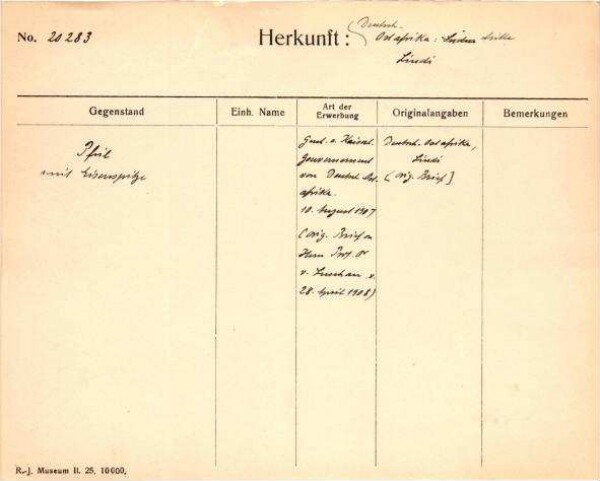 No. 20283
Herkunft: Deutsch.
Ostafrika:
Lindi
Gegenstand
Einh. Name
Art der
Erwerbung
Originalangaben
Bemerkungen
Pfeil
mit Eisenspitze
v. Kaiserl.
Gouvernement
von Deutsch Ost
afrika.
10. August 1907
(Orig. Brief an
Herrn Prof. Dr
v. Luschan v.
28. April 1908)
Deutsch. Ostafrika,
Lindi
(Orig. Brief]
R.-J. Museum II. 25. 10000.